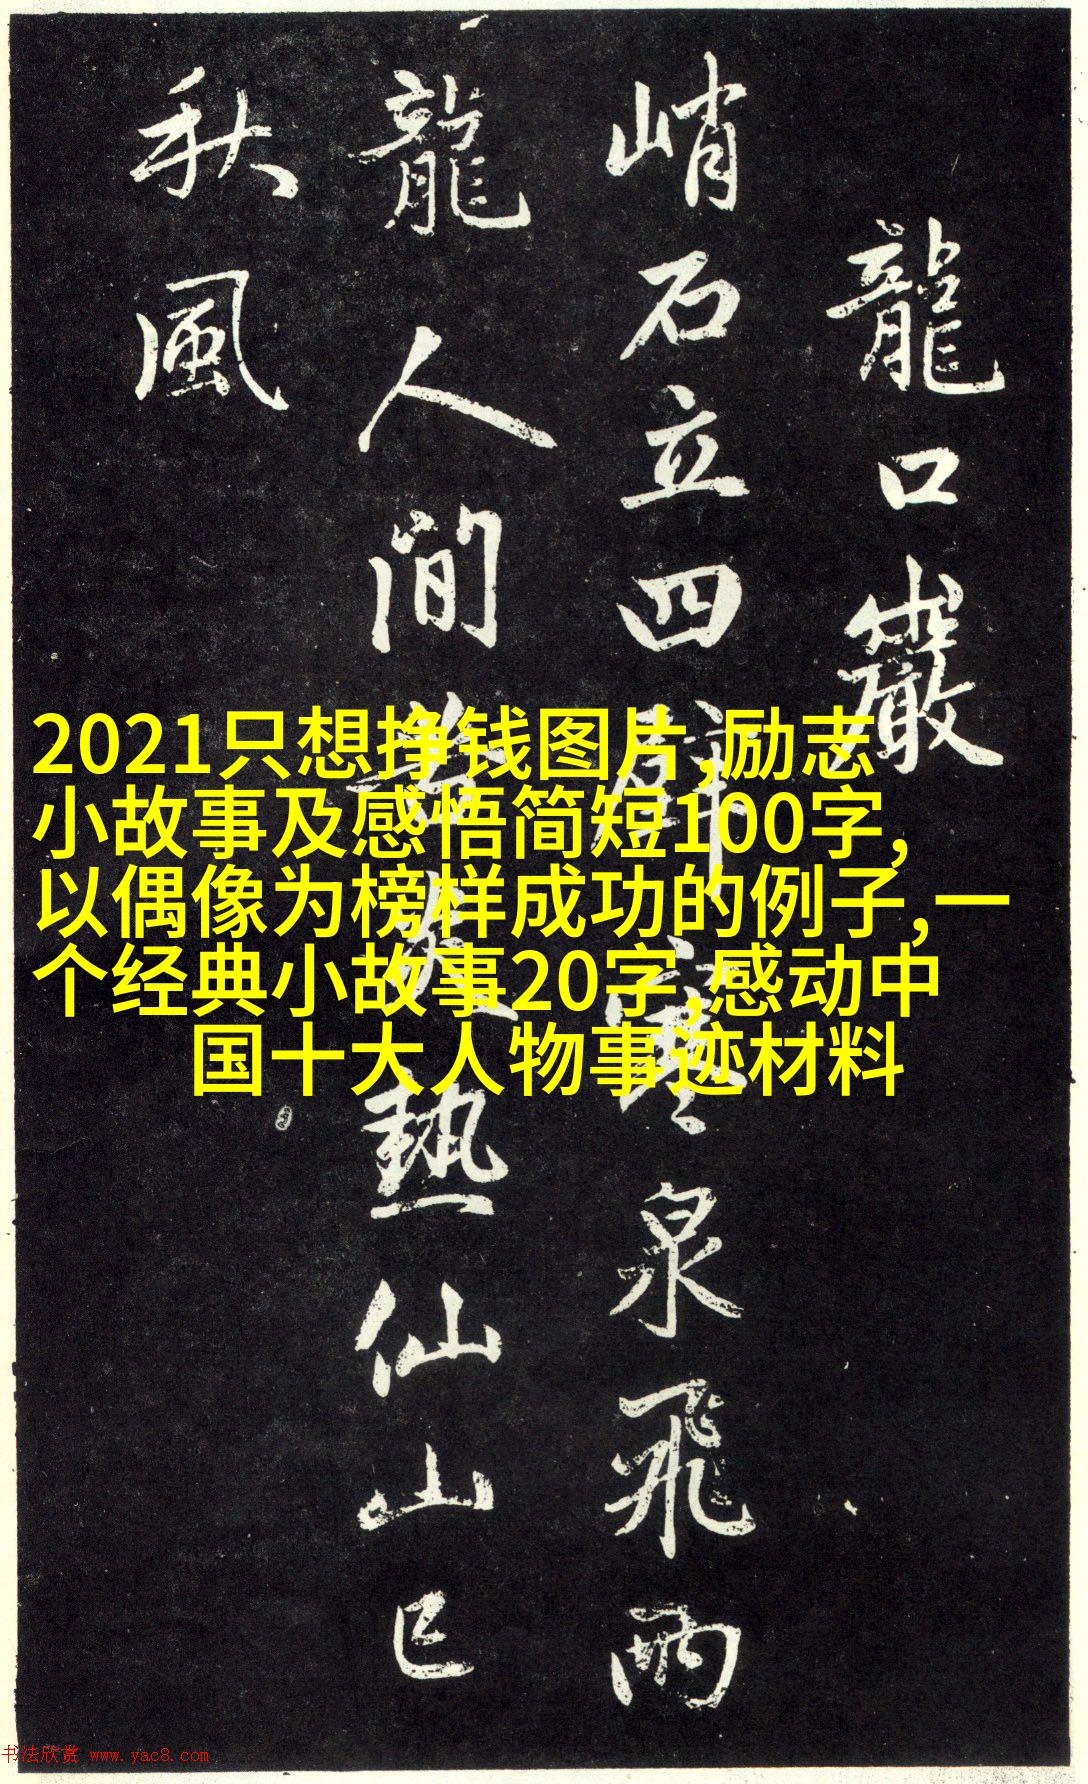 龍口巖
峭石立四壁寒泉飛兩
龍人間苦炎熱仙山已
秋風
2021只想挣钱图片,励志
小故事及感悟简短100字,
以偶像为榜样成功的例子,一
个经典小故事20字,感动中
国十大人物事迹材料
书法欣赏 www.yac8.com